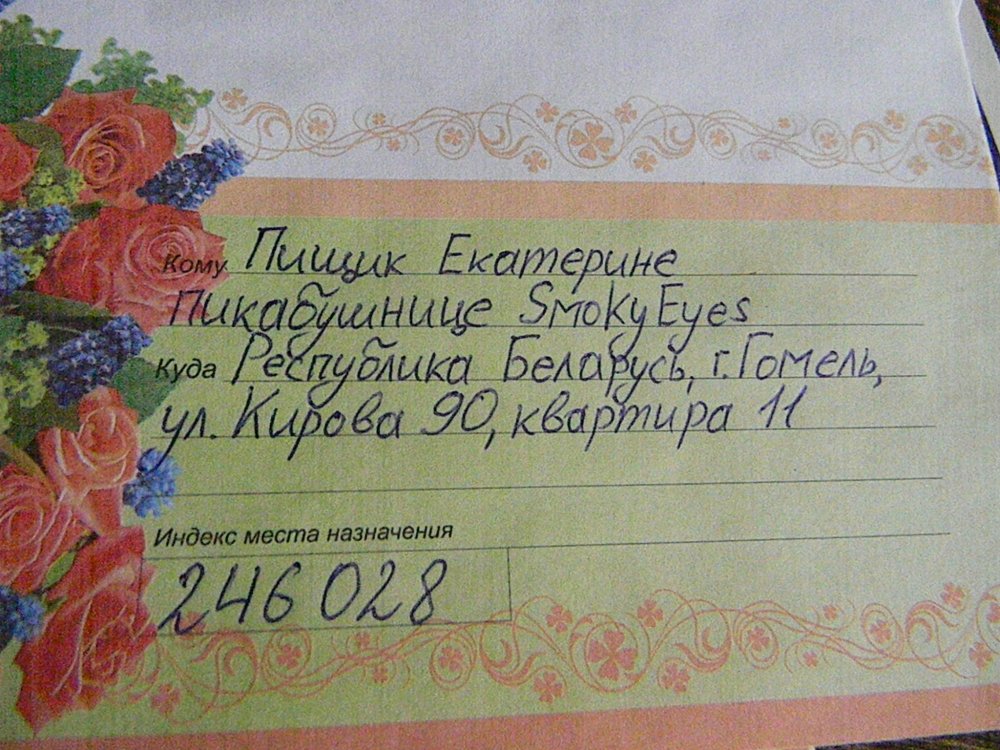 Кому Пищик Екатерине
пикабушнице SmokyEyes
Куда Республика Беларусь, г. Гомель,
ул. Кирова 90, квартира 11
Индекс места назначения
246028